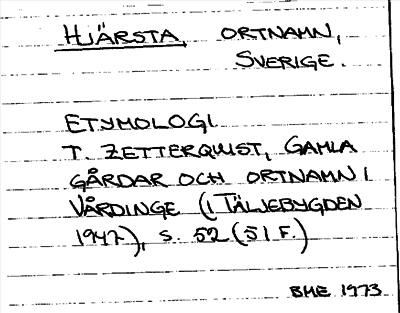 HJÄRSTA, ORTNAMN,
SVERIGE.
ETYMOLOGI
T. ZETTERQUIST, GAMLA
GÅRDAR OCH ORTNAMN I
VÅRDINGE (I TÄLJEBYGDEN
1947), S. 52 (51 F.)
BME 1973